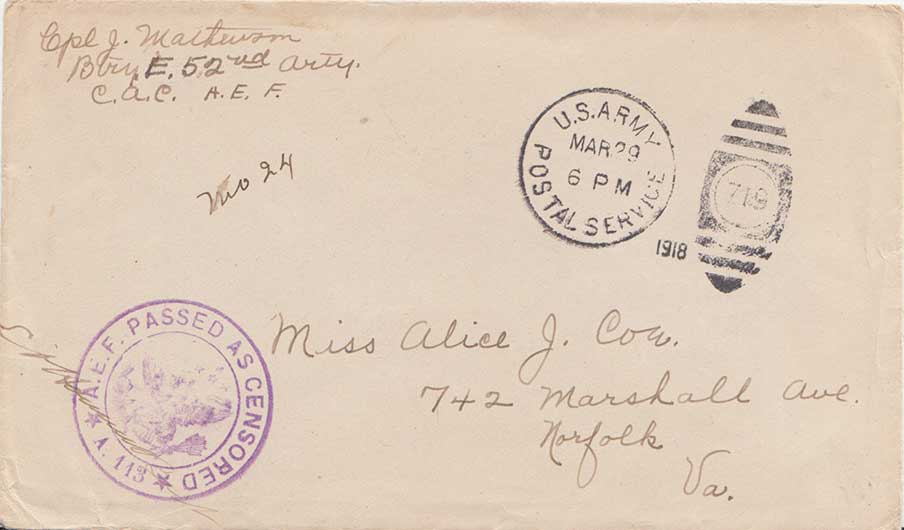 Cpl J. Mathewson
Btry E. 52nd Arty.
C.A.C. A.E.F.
No 24
U.S. ARMY
MAR 29
6 PM
POSTAL SERVICE
1918
719
A.E.F. PASSED AS CENSORED
A. 113
Miss Alice J. Cow.
742 Marshall Ave.
Norfolk
Va.